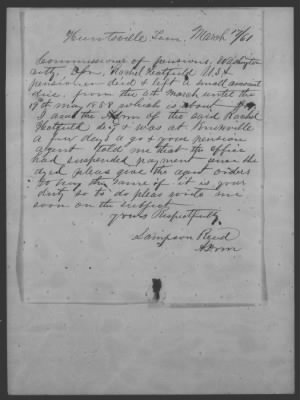 Huntsville Tenn. March 12/61
Commissioner of pensions, Washington
city, Rachel Hatfield U.S.A
pensioner died & left a small amount
due, from the 4th March until the
19th may 1858 which is about
I am the Adm of the said Rachel
Hatfield decd & was at Knoxville
a few days ago & your pension
agent told me that the office
had suspended payment since she
dyed please give the agent orders
to pay the same if it is your
duty so to do pleas write me
soon on the subject
yours Respectfully
Sampson Reed
Adm